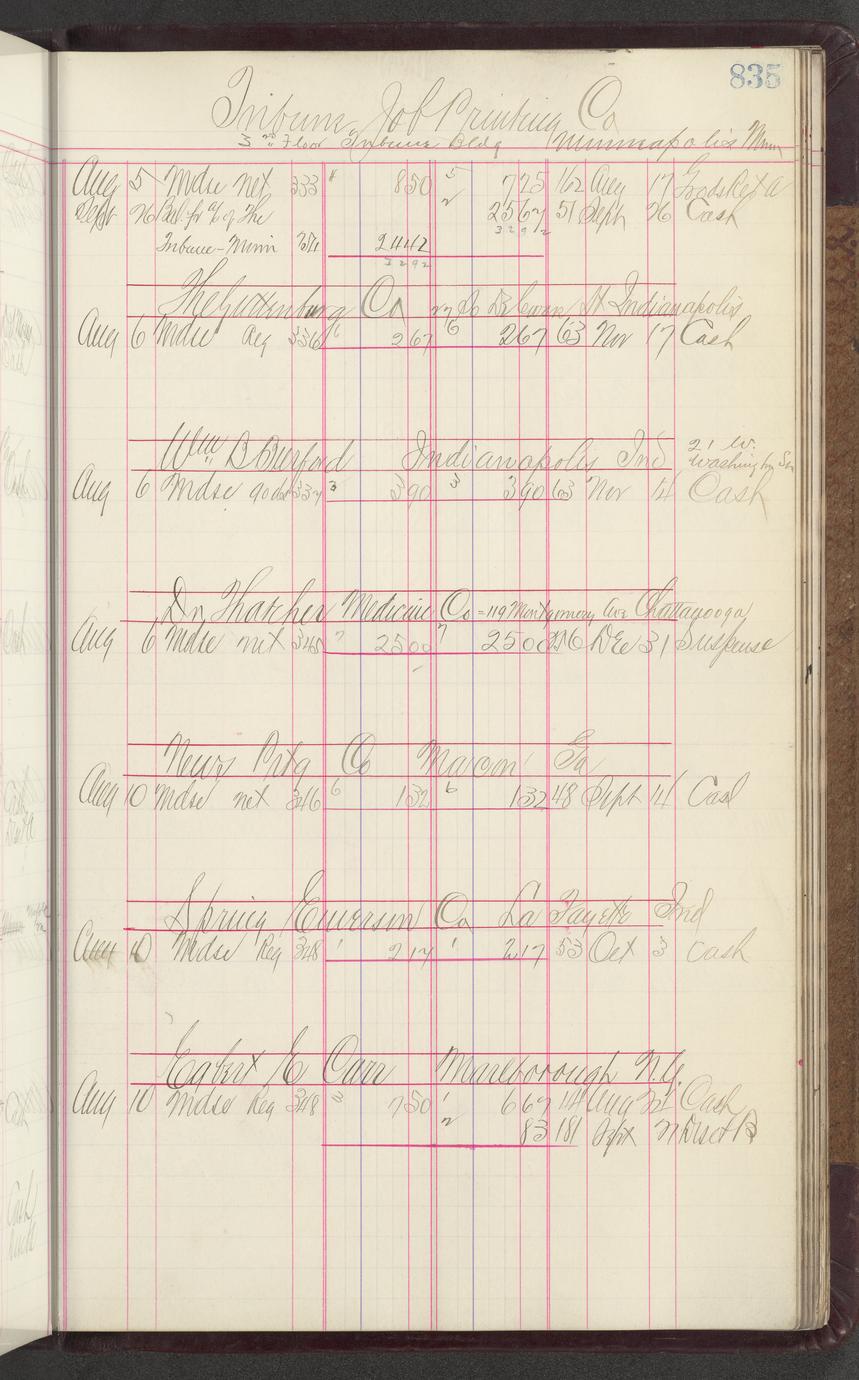 835
Tribune Job Printing Co
3rd Floor Tribune Bldg Minneapolis Minn
Aug 5 Mdse net 333 1 850 5 725 162 Aug 17
Sept 26 Bal for a/c of The 2 2567 51 Sept 26 Cash
3292
Tribune-Minn 374 2442
3292
The Guttenburg Co 27 So St Indianapolis
Aug 6 Mdse Reg 336 6 267 6 267 63 Nov 17 Cash
Wm B Burford Indianapolis Ind 21 W.
Washington
Aug 6 Mdse 337 3 390 3 390 63 Nov 14 Cash
Dr Thatcher Medicine Co - 119 Montgomery Ave Chattanooga
Aug 6 Mdse net 345 7 2500 7 2500 Dec 31 Suspense
News Prtg Co Macon Ga
Aug 10 Mdse net 346 6 132 6 132 48 Sept 14 Cash
Spring Emerson Co La Fayette Ind
Aug 10 Mdse Reg 348 1 217 1 217 53 Oct 3 Cash
Egbert E Carr Marlborough N.Y.
Aug 10 Mdse Reg 348 3 750 1 667 141 Aug 24 Cash
2 83 181 Sept 21 Disct B